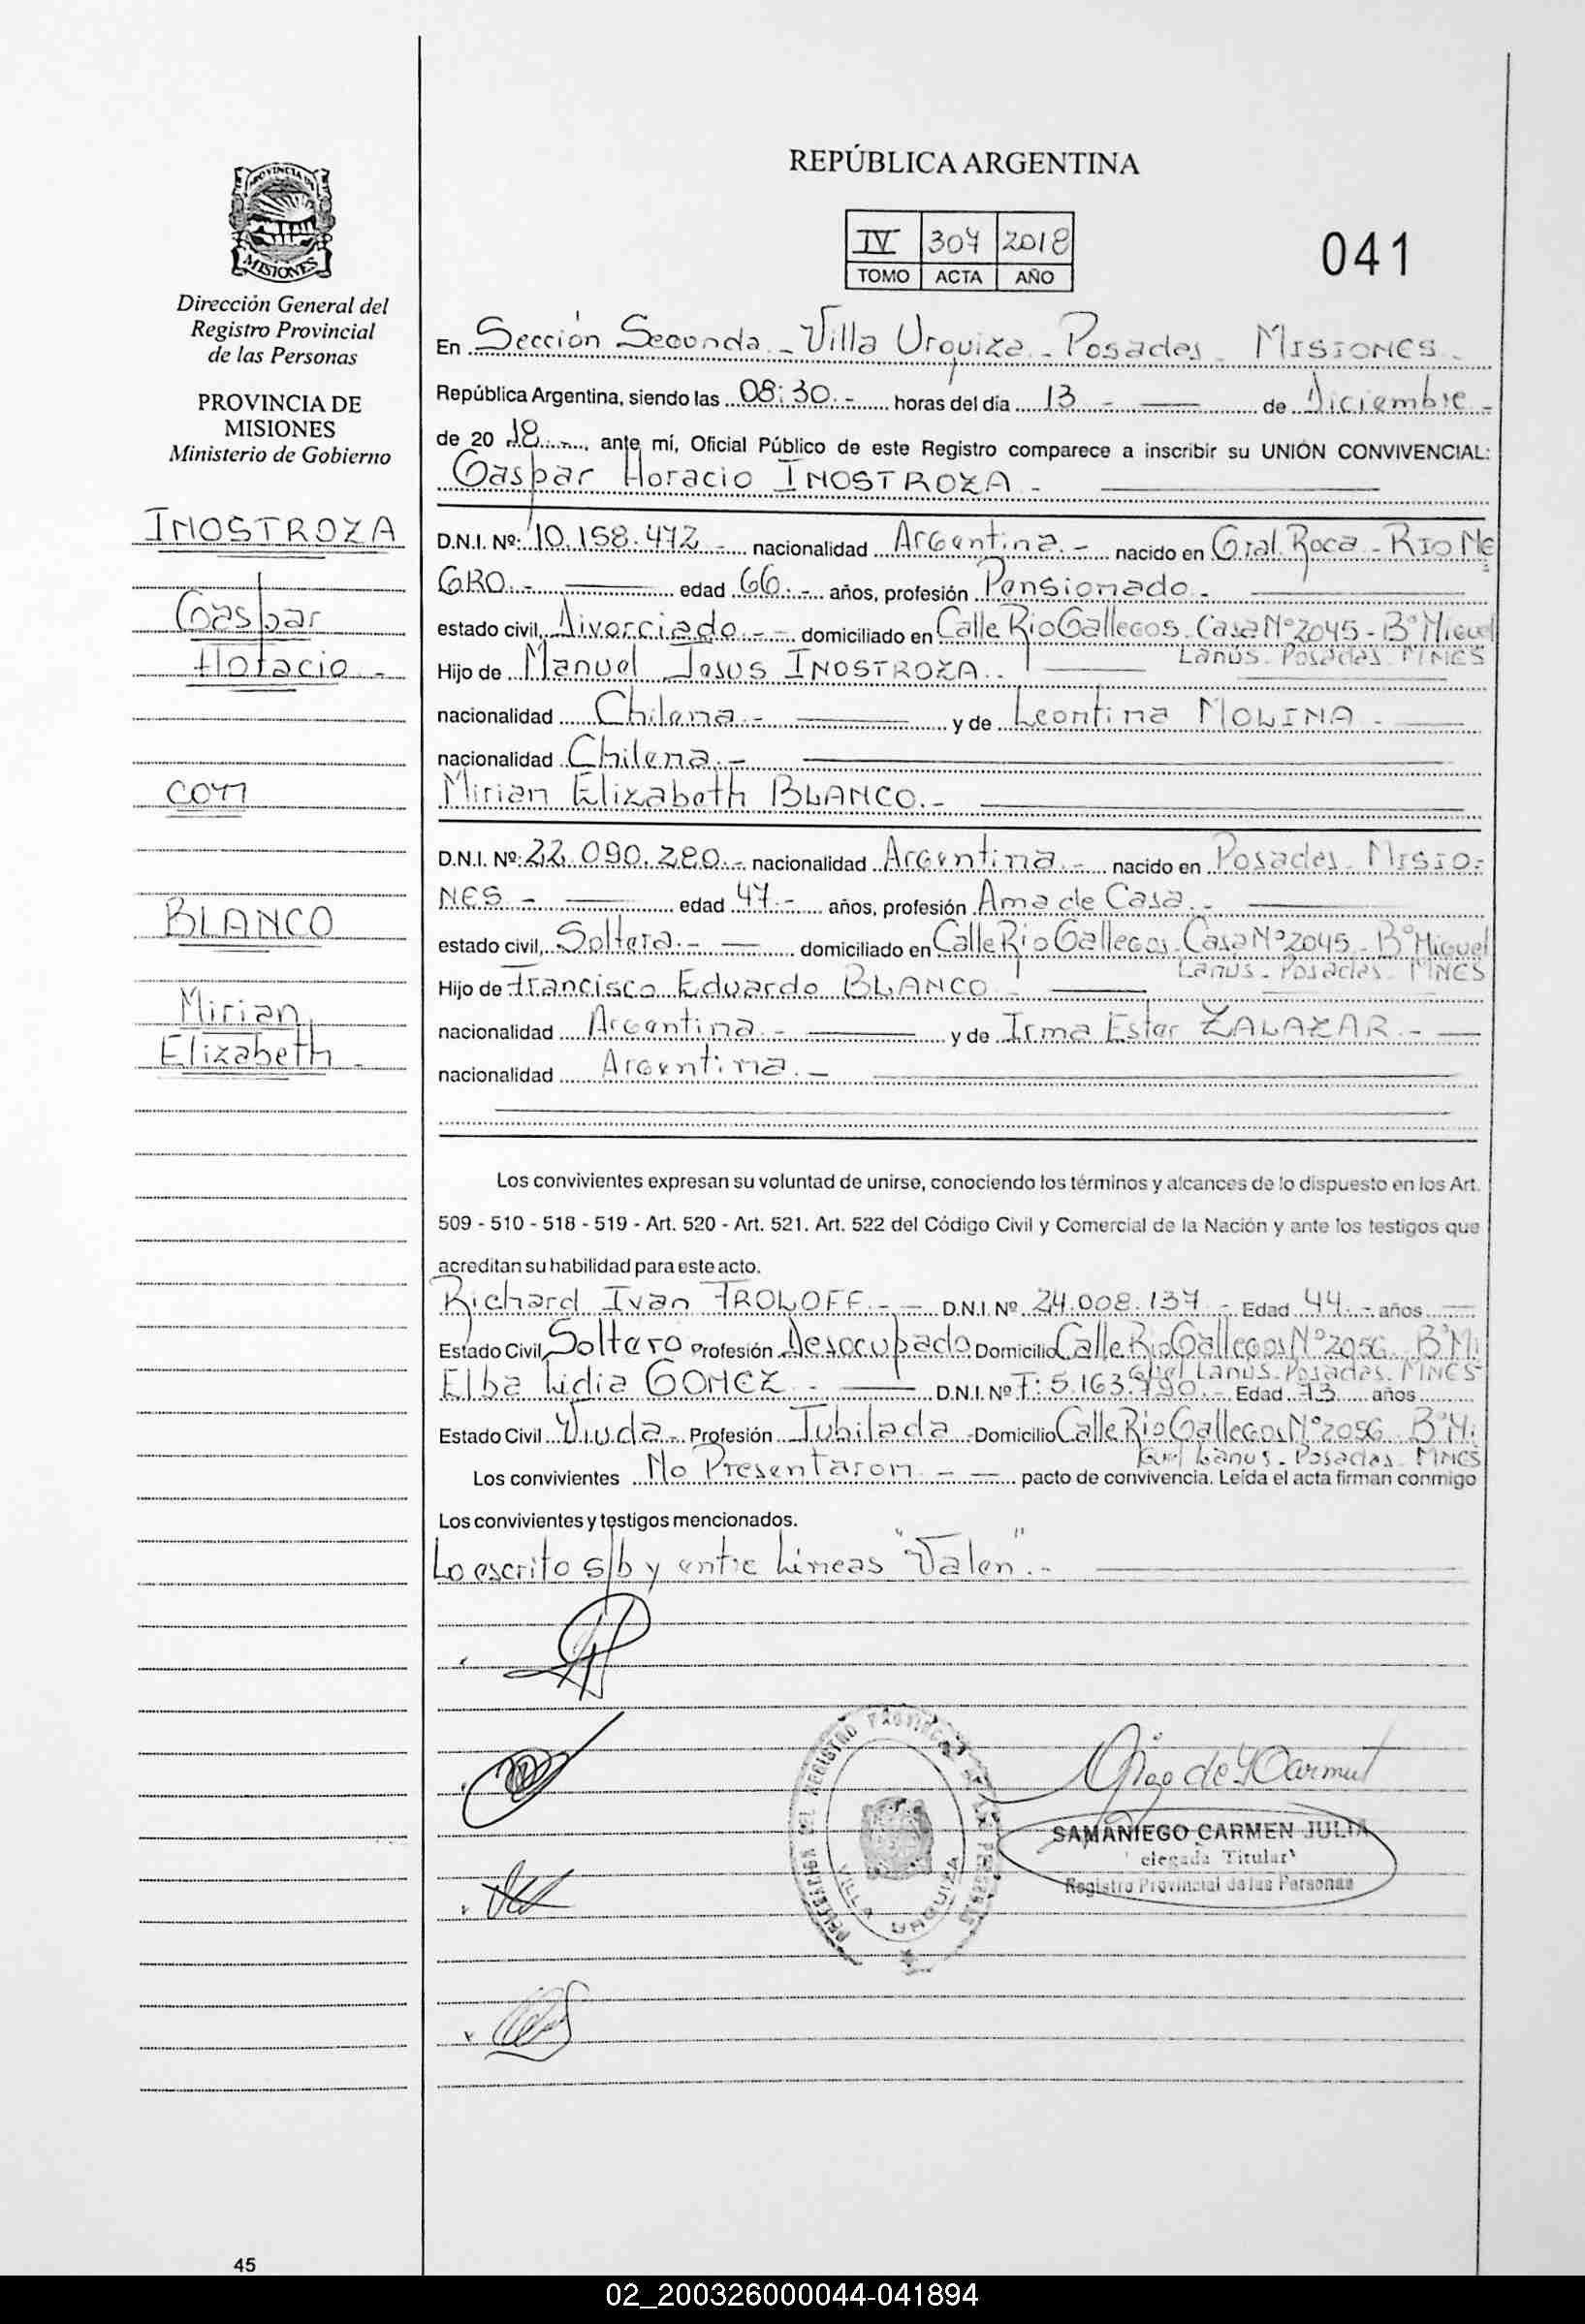 REPÚBLICA ARGENTINA
IV 304 2018
TOMO ACTA AÑO
041
PROVINCIA DE
MISIONES
Dirección General del
Registro Provincial
de las Personas
PROVINCIA DE
MISIONES
Ministerio de Gobierno
INOSTROZA
Gaspar
Horacio.-
con
BLANCO
Mirian
Elizabeth-
En Sección Segunda - Villa Urquiza - Posadas - MISIONES.
República Argentina, siendo las 08:30.- horas del día 13 - de Diciembre -
de 20 18.-, ante mí, Oficial Público de este Registro comparece a inscribir su UNIÓN CONVIVENCIAL:
Gaspar Horacio INOSTROZA -
D.N.I. Nº: 10.158.472 - nacionalidad Argentina.- nacido en Gral. Roca - RIO NE
GRO.- edad 66.- años, profesión Pensionado.-
estado civil, Divorciado.-- domiciliado en Calle Rio Gallegos - Casa Nº 2045 - Bº Miguel
Lanús - Posadas - MNES
Hijo de Manuel Jesus INOSTROZA.-
nacionalidad Chilena.- y de Leontina MOLINA.-
nacionalidad Chilena.-
Mirian Elizabeth BLANCO.-
D.N.I. Nº: 22.090.280.- nacionalidad Argentina.- nacido en Posadas - MISIO-
NES.- edad 47.- años, profesión Ama de Casa.-
estado civil, Soltera.- domiciliado en Calle Rio Gallegos - Casa Nº 2045 - Bº Miguel
Lanus - Posadas - MNES
Hijo de Francisco Eduardo BLANCO -
nacionalidad Argentina.- y de Irma Ester ZALAZAR.-
nacionalidad Argentina.-
Los convivientes expresan su voluntad de unirse, conociendo los términos y alcances de lo dispuesto en los Art.
509 - 510 - 518 - 519 - Art. 520 - Art. 521. Art. 522 del Código Civil y Comercial de la Nación y ante los testigos que
acreditan su habilidad para este acto.
Richard Ivan FROLOFF.-- D.N.I. Nº 24.008.137 - Edad 44.- años
Estado Civil Soltero Profesión Desocupado Domicilio Calle Rio Gallegos Nº 2056 - Bº Mi
guel Lanús - Posadas - MNES
Elba Lidia GOMEZ - D.N.I. Nº F: 5.163.790.- Edad 73 años
Estado Civil Viuda - Profesión Jubilada - Domicilio Calle Rio Gallegos Nº 2056 - Bº Mi
guel Lanus - Posadas - MNES
Los convivientes No Presentaron -- pacto de convivencia. Leída el acta firman conmigo
Los convivientes y testigos mencionados.
Lo escrito s/b y entre Lineas "Valen".-
DELEGACIÓN DEL REGISTRO PROVINCIAL DE LAS PERSONAS
VILLA URQUIZA
SAMANIEGO CARMEN JULIA
elegada Titular
Registro Provincial de las Personas
45
02_200326000044-041894